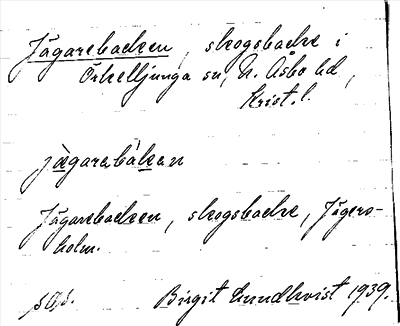 Jägarebacken, skogsbacke i
Örkelljunga sn, N. Åsbo hd,
Krist. l.
jä̀garebákan
Jägarebacken, skogsbacke, Jägers-
holm.
Birgit Lundkvist 1939.